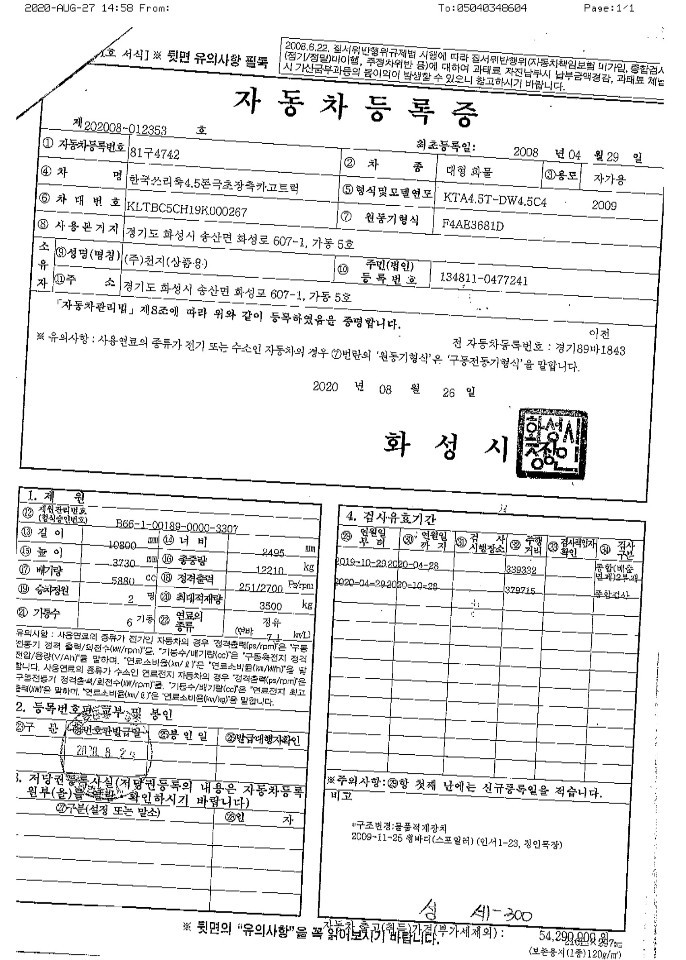 2020-AUG-27 14:58 From: To:05040348604 Page:1/1
호 서식] ※ 뒷면 유의사항 필독
2008.6.22. 질서위반행위규제법 시행에 따라 질서위반행위(자동차책임보험 미가입, 종합검사
(정기/정밀)미이행, 주정차위반 등)에 대하여 과태료 자진납부시 납부금액경감, 과태료 체납
시 가산금부과등의 불이익이 발생할 수 있으니 참고하시기 바랍니다.
자동차등록증
제202008-012353 호 최초등록일: 2008 년 04 월 29 일
① 자동차등록번호 81구4742 ② 차 종 대형 화물 ③용도 자가용
④ 차 명 한국쓰리축4.5톤극초장축카고트럭 ⑤형식및모델연도 KTA4.5T-DW4.5C4 2009
⑥ 차대번호 KLTBC5CH19K000267 ⑦ 원동기형식 F4AE3681D
⑧ 사용본거지 경기도 화성시 송산면 화성로 607-1, 가동 5호
소유자 ⑨성명(명칭) (주)천지(상품용) ⑩ 주민(법인)등록번호 134811-0477241
⑪주 소 경기도 화성시 송산면 화성로 607-1, 가동 5호
「자동차관리법」 제8조에 따라 위와 같이 등록하였음을 증명합니다.
이전
전 자동차등록번호 : 경기89바1843
※ 유의사항 : 사용연료의 종류가 전기 또는 수소인 자동차의 경우 ⑦번란의 '원동기형식'은 '구동전동기형식'을 말합니다.
2020 년 08 월 26 일
화성시
1. 제 원
⑫ 제원관리번호(형식승인번호) B66-1-00189-0000-3307
⑬ 길 이 10800 mm ⑭ 너 비 2495 mm
⑮ 높 이 3730 mm ⑯ 총중량 12210 kg
⑰ 배기량 5880 cc ⑱ 정격출력 251/2700 Ps/rpm
⑲ 승차정원 2 명 ⑳ 최대적재량 3500 kg
㉑ 기통수 6 기통 ㉒ 연료의 종류 경유 (연비 7.1 km/L)
유의사항 : 사용연료의 종류가 전기인 자동차의 경우 '정격출력(ps/rpm)'은 '구동
전동기 정격 출력/회전수(kW/rpm)'을, '기통수/배기량(cc)'은 '구동축전지 정격
전압/용량(V/Ah)'을 말하며, '연료소비율(km/ℓ)'은 '연료소비율(km/kWh)'을 말
합니다. 사용연료의 종류가 수소인 연료전지 자동차의 경우 '정격출력(ps/rpm)'은
'구동전동기 정격출력/회전수(kW/rpm)'을, '기통수/배기량(cc)'은 '연료전지 최고
출력(kW)'을 말하며, '연료소비율(km/ℓ)'은 '연료소비율(km/kg)'을 말합니다.
2. 등록번호판 교부 및 봉인
㉓구 분 ㉔번호판발급일 ㉕봉 인 일 ㉖발급대행자확인
3. 저당권등록사실(저당권등록의 내용은 자동차등록
원부(을)를 열람·확인하시기 바랍니다)
㉗구분(설정 또는 말소) ㉘일 자
4. 검사유효기간
㉙ 연월일부터 ㉚ 연월일까지 ㉛ 검사시행장소 ㉜ 주행거리 ㉝ 검사책임자확인 ㉞ 검사구분
2019-10-29 2020-04-28 339332
2020-04-29 2020-10-28 379715 종합검사
※주의사항:㉙항 첫째 난에는 신규등록일을 적습니다.
비고
*구조변경:물품적재장치
2009-11-25 윙바디(스포일러) (인서1-23, 정인목장)
세-300
※ 뒷면의 "유의사항"을 꼭 읽어보시기 바랍니다.
자동차 출고(취득)가격(부가세제외) : 54,290,000 원
210㎜×297㎜
(보존용지(1종)120g/㎡)